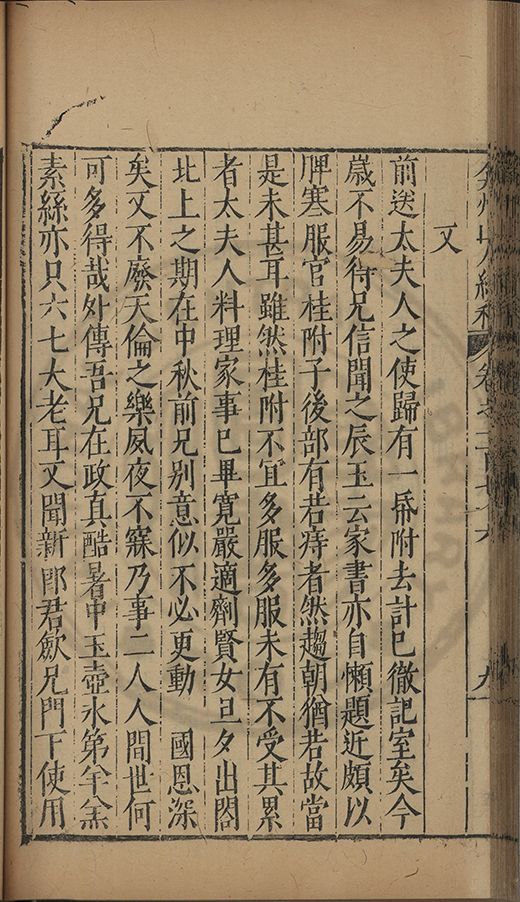 弇州山人續稿 卷之一百七十六 九
又
前送太夫人之使歸有一帋附去計已徹記室矣今
歲不易待兄信聞之辰玉云家書亦自懶題近頗以
脾寒服官桂附子後部有若痔者然趨朝猶若故當
是未甚耳雖然桂附不宜多服多服未有不受其累
者太夫人料理家事已畢寛嚴適劑賢女旦夕出閤
北上之期在中秋前兄別意似不必更動 國恩深
矣又不廢天倫之樂夙夜不寐乃事二人人間世何
可多得哉外傳吾兄在政真酷暑中玉壺氷第年金
素絲亦只六七大老耳又聞新郎君飲兄門下使用